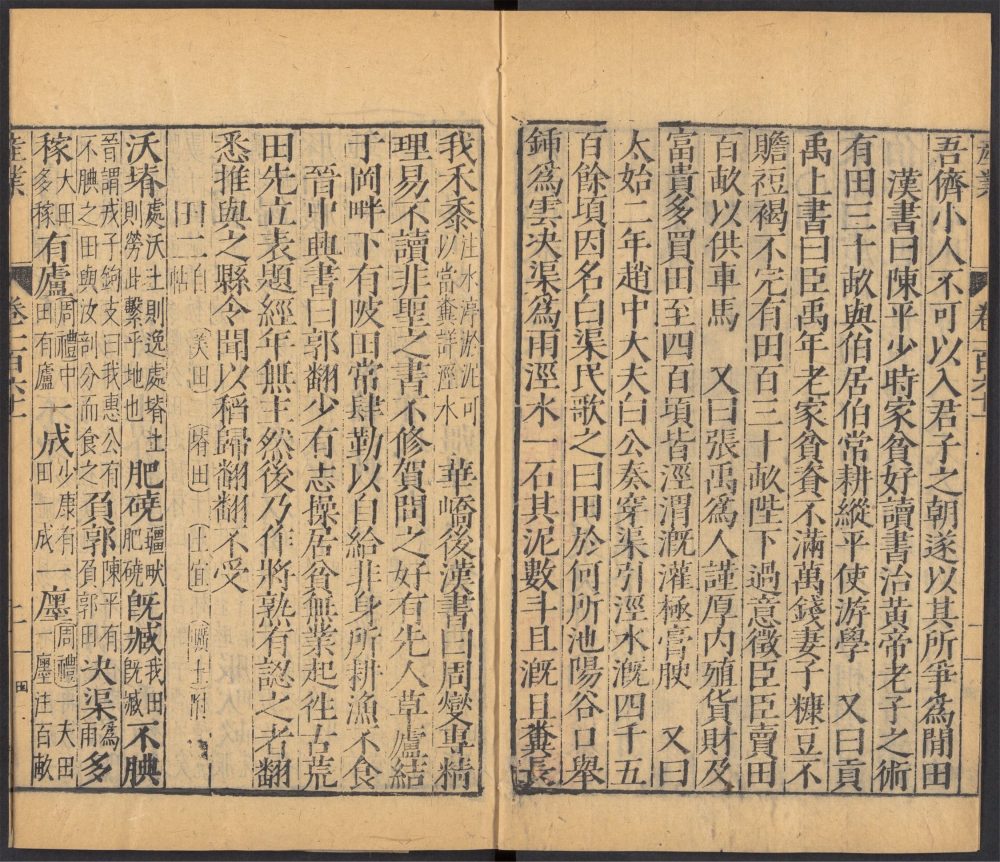 吾儕小人不可以入君子之朝遂以其所爭為閒田
漢書曰陳平少時家貧好讀書治黃帝老子之術
有田三十畝與伯居伯常耕縱平使游學　又曰貢
禹上書曰臣禹年老家貧貲不滿萬錢妻子糠豆不
贍裋褐不完有田百三十畝陛下過意徵臣臣賣田
百畝以供車馬　又曰張禹為人謹厚內殖貨財及
富貴多買田至四百頃皆涇渭溉灌極膏腴　又曰
太始二年趙中大夫白公奏穿渠引涇水溉四千五
百餘頃因名白渠民歌之曰田於何所池陽谷口舉
鍤為雲决渠為雨涇水一石其泥數斗且溉且糞長
我禾黍注水渟淤泥可以當糞詳涇水　華嶠後漢書曰周燮專精
理易不讀非聖之書不修賀問之好有先人草廬結
于岡畔下有陂田常肆勤以自給非身所耕漁不食
晉中興書曰郭翻少有志操居貧無業起徃古荒
田先立表題經年無主然後乃作將熟有認之者翻
悉推與之縣令聞以稻歸翻翻不受
田二
沃堾處沃土則逸處堾土則勞此繫乎地也　肥磽疆畎肥磽　旣臧我田旣臧　不腆
晉謂戎子駒支曰我惠公有不腆之田與汝剖分而食之　負郭陳平有負郭田　决渠為雨　多
稼大田多稼　有廬周禮中田有廬　一成少康有田一成　一廛周禮一夫田一廛注百畝
產業　卷一百六十